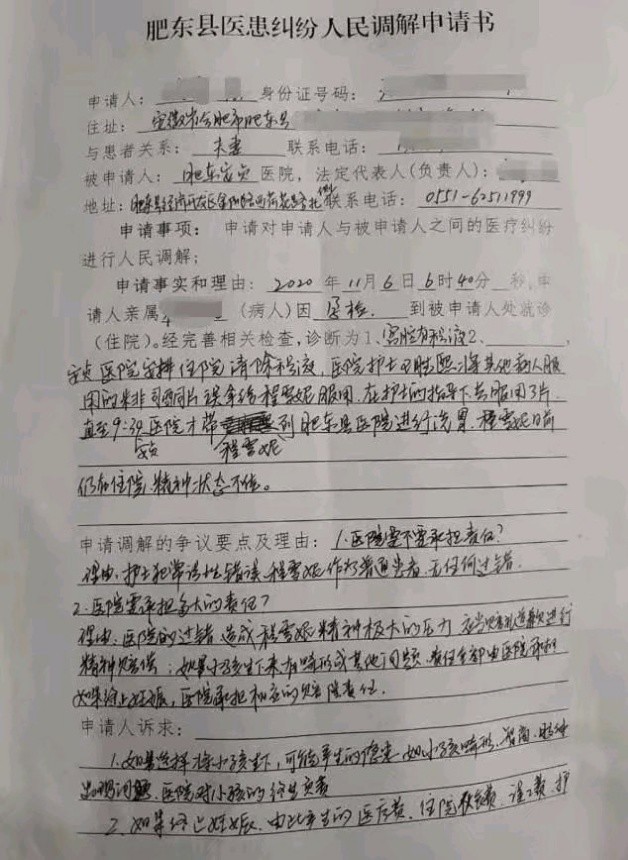 肥东县医患纠纷人民调解申请书
申请人: 身份证号码:
住址: 安徽省合肥市肥东县
与患者关系: 夫妻 联系电话:
被申请人: 肥东安贞 医院, 法定代表人(负责人):
地址: 肥东县经济开发区 联系电话: 0551-62511999
申请事项: 申请对申请人与被申请人之间的医疗纠纷
进行人民调解;
申请事实和理由: 2020 年 11 月 6 日 6 时 40 分 秒,申
请人亲属 (病人)因 孕检 到被申请人处就诊
(住院)。经完善相关检查,诊断为1、宫腔有积液2、 ,
安贞医院安排住院清除积液,医院护士 将其他病人服
用的米非司酮片误拿给程雪妮服用,在护士的指导下共服用3片
直至9:30医院才带 到肥东县医院进行洗胃,程雪妮目前
安贞 程雪妮
仍在住院,精神状态不佳。
申请调解的争议要点及理由: 1.医院要不要承担责任?
理由:护士犯常识性错误,程雪妮作为普通患者,无任何过错.
2.医院需承担多大的责任?
理由:医院的过错造成程雪妮精神极大的压力,应当赔礼道歉,进行
精神赔偿;如果小孩生下来有畸形或其他问题,责任全部由医院承担
如果终止妊娠,医院承担相应的赔偿责任.
申请人诉求:
1.如果选择将小孩生下,可能产生的隐患,如小孩畸形、智商、精神
出现问题,医院对小孩的终生负责
2.如果终止妊娠,由此产生的医疗费、住院伙食费、误工费、护